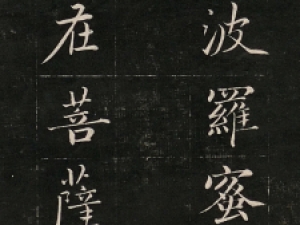 波羅蜜
在菩薩